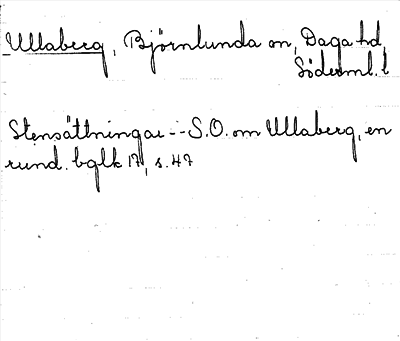 Ullaberg, Björnlunda sn, Daga hd,
Söderml. l
Stensättningar -:- S.O. om Ullaberg, en
rund. bglk 17, s. 47